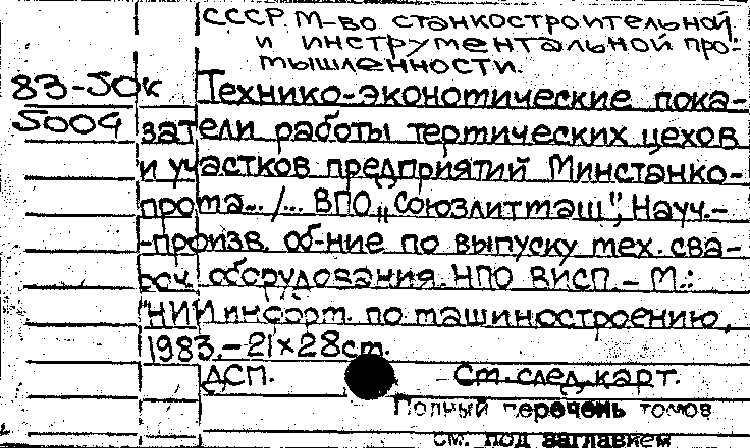 СССР. М-во станкостроительной
и инструментальной про-
мышленности.
83-50к Технико-экономические пока-
5009 затели работы термических цехов
и участков предприятий Минстанко-
прома... /... ВПО "Союзлитмаш", Науч.-
-произв. об-ние по выпуску тех. сва-
роч. оборудования. НПО ВИСП. - М.:
НИИ информ. по машиностроению,
1983. - 21×28см.
ДСП. См. след. карт.
Полный перечень томов
см. под заглавием